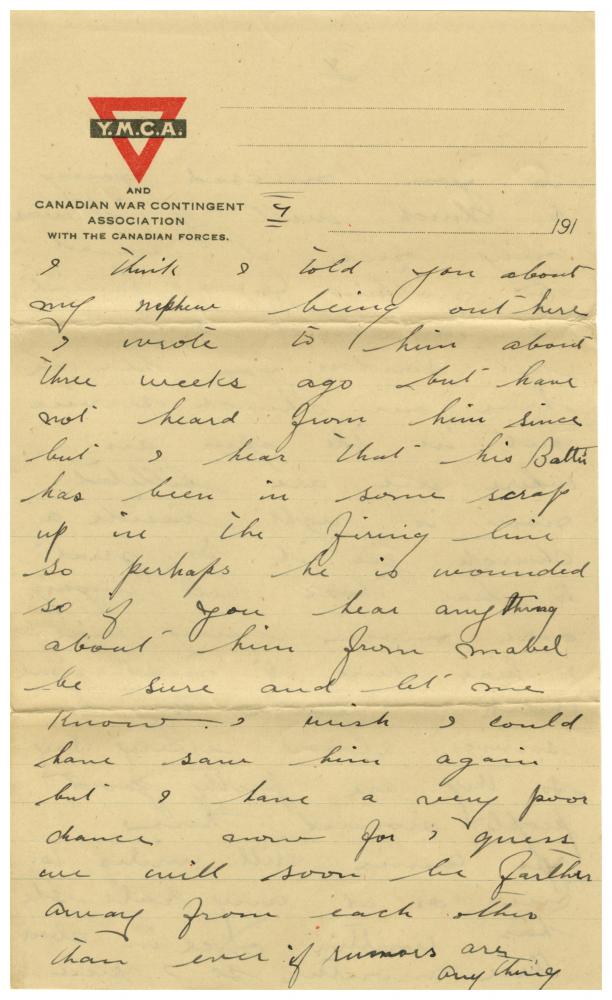 Y.M.C.A.
AND
CANADIAN WAR CONTINGENT
ASSOCIATION
WITH THE CANADIAN FORCES.
191
I think I told you about
my nephew being out here
I wrote to him about
three weeks ago but have
not heard from him since
but I hear that his Battn
has been in some scrap
up in the firing line
so perhaps he is wounded
so if you hear anything
about him from Mabel
be sure and let me
know. I wish I could
have saw him again
but I have a very poor
chance now for I guess
we will soon be farther
away from each other
than ever if rumors are
anything